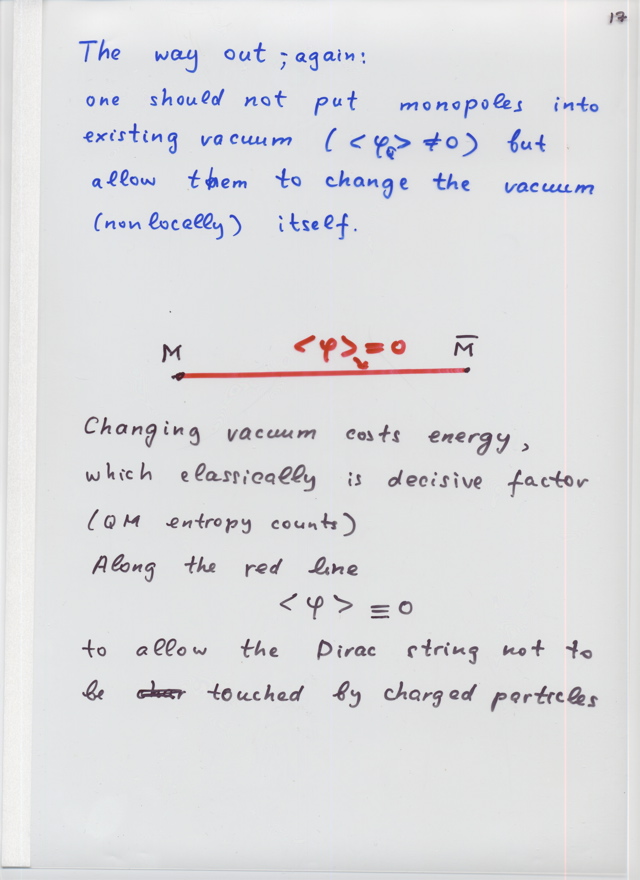 17
The way out ; again:
one should not put monopoles into
existing vacuum ( <φ_Q> ≠ 0 ) but
allow them to change the vacuum
(nonlocally) itself.
M <φ> = 0 M̅
Changing vacuum costs energy,
which classically is decisive factor
(QM entropy counts)
Along the red line
<φ> ≡ 0
to allow the Dirac string not to
be touched by charged particles